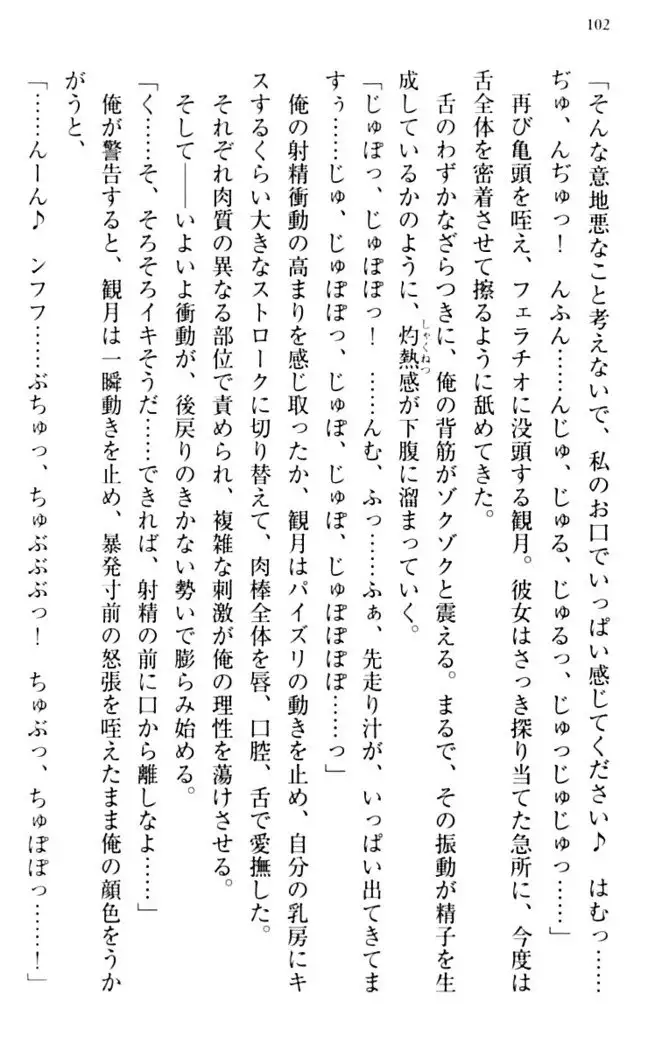 102
「そんな意地悪なこと考えないで、私のお口でいっぱい感じてください♪　はむっ……
ぢゅ、んぢゅっ！　んふん……んじゅ、じゅる、じゅるっ、じゅっじゅじゅっ……」
再び亀頭を咥え、フェラチオに没頭する観月。彼女はさっき探り当てた急所に、今度は
舌全体を密着させて擦るように舐めてきた。
舌のわずかなざらつきに、俺の背筋がゾクゾクと震える。まるで、その振動が精子を生
成しているかのように、灼熱感が下腹に溜まっていく。
しゃくねつ
「じゅぽっ、じゅぽぽっ！　……んむ、ふっ……ふぁ、先走り汁が、いっぱい出てきてま
すぅ……じゅ、じゅぽぽっ、じゅぽ、じゅぽ、じゅぽぽぽぽ……っ」
俺の射精衝動の高まりを感じ取ったか、観月はパイズリの動きを止め、自分の乳房にキ
スするくらい大きなストロークに切り替えて、肉棒全体を唇、口腔、舌で愛撫した。
それぞれ肉質の異なる部位で責められ、複雑な刺激が俺の理性を蕩けさせる。
そして――いよいよ衝動が、後戻りのきかない勢いで膨らみ始める。
「く……そ、そろそろイキそうだ……できれば、射精の前に口から離しなよ……」
俺が警告すると、観月は一瞬動きを止め、暴発寸前の怒張を咥えたまま俺の顔色をうか
がうと、
「……んーん♪　ンフフ……ぶちゅっ、ちゅぶぶぶっ！　ちゅぶっ、ちゅぽぽっ……！」